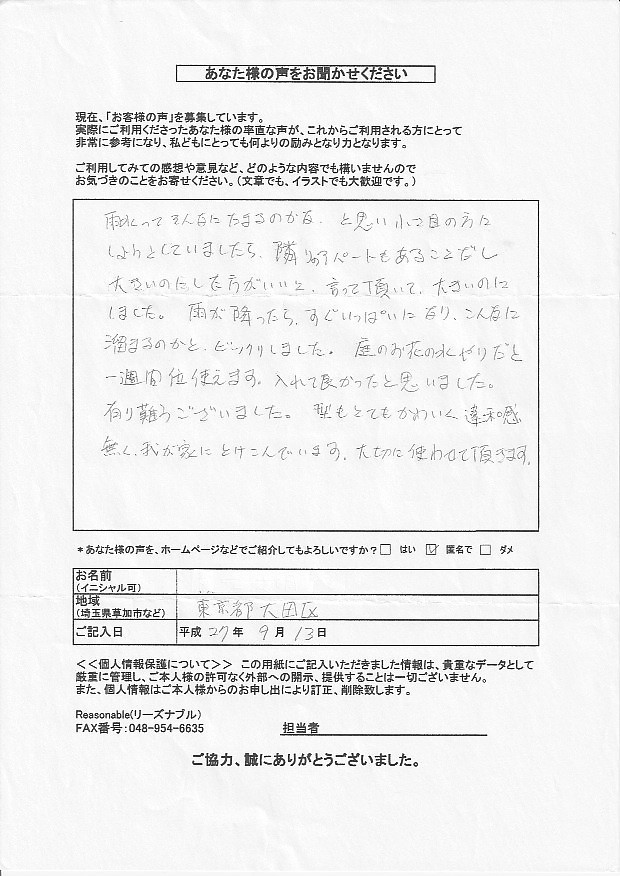 あなた様の声をお聞かせください
現在、「お客様の声」を募集しています。
実際にご利用くださったあなた様の率直な声が、これからご利用される方にとって
非常に参考になり、私どもにとっても何よりの励みとなり力となります。
ご利用してみての感想や意見など、どのような内容でも構いませんので
お気づきのことをお寄せください。(文章でも、イラストでも大歓迎です。)
雨水ってそんなにたまるのかな、と思い小さ目の方に
しようとしていましたら、隣りのアパートもあることだし
大きいのにした方がいいと、言って頂いて、大きいのに
しました。 雨が降ったら、すぐいっぱいになり、こんなに
溜まるのかと、ビックリしました。 庭のお花の水やりだと
一週間位使えます。入れて良かったと思いました。
有り難うございました。 型もとてもかわいく、違和感
無く、我が家にとけこんでいます。大切に使わせて頂きます。
*あなた様の声を、ホームページなどでご紹介してもよろしいですか?□ はい ☑ 匿名で □ ダメ
お名前
(イニシャル可)
地域
(埼玉県草加市など) 東京都大田区
ご記入日 平成 27 年 9 月 13 日
<<個人情報保護について>> この用紙にご記入いただきました情報は、貴重なデータとして
厳重に管理し、ご本人様の許可なく外部への開示、提供することは一切ございません。
また、個人情報はご本人様からのお申し出により訂正、削除致します。
Reasonable(リーズナブル)
FAX番号:048-954-6635 担当者
ご協力、誠にありがとうございました。